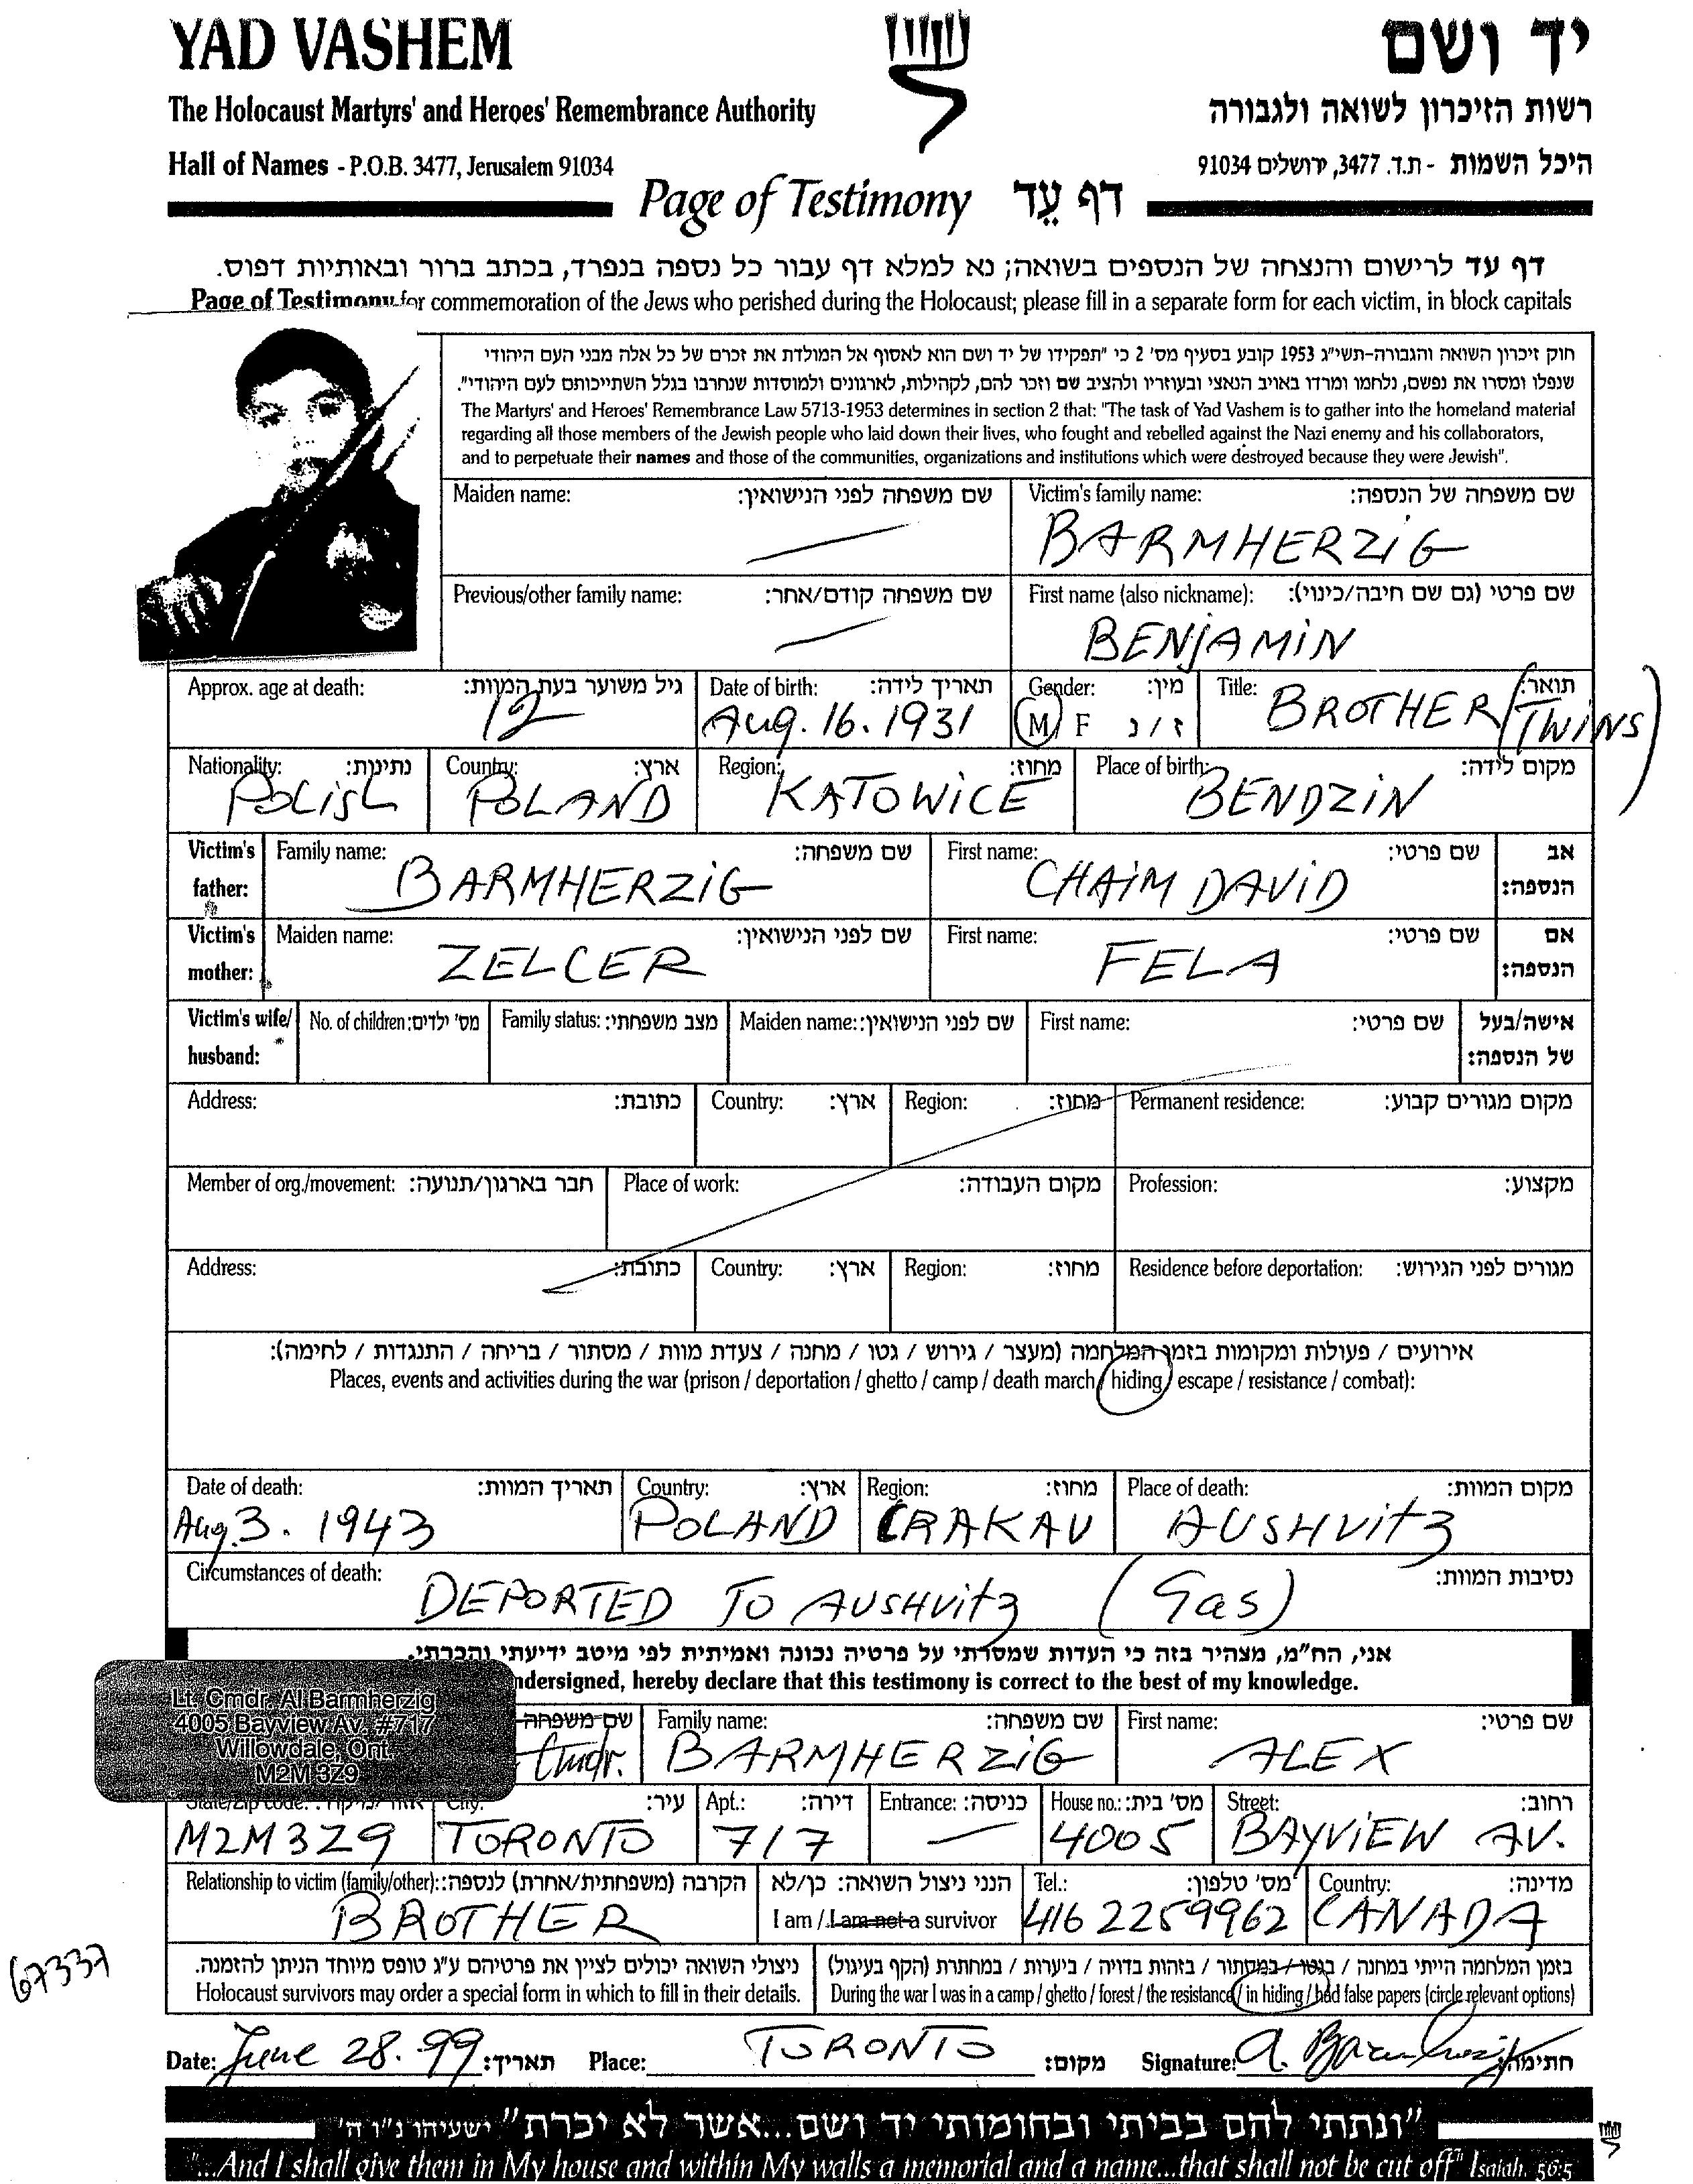 YAD VASHEM
יד ושם
The Holocaust Martyrs' and Heroes' Remembrance Authority
רשות הזיכרון לשואה ולגבורה
Hall of Names - P.O.B. 3477, Jerusalem 91034
היכל השמות - ת.ד. 3477, ירושלים 91034
Page of Testimony דף עֵד
דף עד לרישום והנצחה של הנספים בשואה; נא למלא דף עבור כל נספה בנפרד, בכתב ברור ובאותיות דפוס.
Page of Testimony for commemoration of the Jews who perished during the Holocaust; please fill in a separate form for each victim, in block capitals
חוק זיכרון השואה והגבורה-תשי"ג 1953 קובע בסעיף מס' 2 כי "תפקידו של יד ושם הוא לאסוף אל המולדת את זכרם של כל אלה מבני העם היהודי
שנפלו ומסרו את נפשם, נלחמו ומרדו באויב הנאצי ובעוזריו ולהציב שם וזכר להם, לקהילות, לארגונים ולמוסדות שנחרבו בגלל השתייכותם לעם היהודי".
The Martyrs' and Heroes' Remembrance Law 5713-1953 determines in section 2 that: "The task of Yad Vashem is to gather into the homeland material
regarding all those members of the Jewish people who laid down their lives, who fought and rebelled against the Nazi enemy and his collaborators,
and to perpetuate their names and those of the communities, organizations and institutions which were destroyed because they were Jewish".
Maiden name: שם משפחה לפני הנישואין:
Victim's family name: שם משפחה של הנספה:
BARMHERZiG
Previous/other family name: שם משפחה קודם/אחר:
First name (also nickname): שם פרטי (גם שם חיבה/כינוי):
BENjAMiN
Approx. age at death: גיל משוער בעת המוות:
12
Date of birth: תאריך לידה:
Aug. 16. 1931
Gender: מין:
M F ז / נ
Title: תואר:
BROTHER (TWiNS)
Nationality: נתינות:
POLiSH
Country: ארץ:
POLAND
Region: מחוז:
KATOWiCE
Place of birth: מקום לידה:
BENDZiN
Victim's father: אב הנספה:
Family name: שם משפחה:
BARMHERZiG
First name: שם פרטי:
CHAiM DAViD
Victim's mother: אם הנספה:
Maiden name: שם לפני הנישואין:
ZELCER
First name: שם פרטי:
FELA
Victim's wife/husband: אישה/בעל של הנספה:
No. of children: מס' ילדים:
Family status: מצב משפחתי:
Maiden name: שם לפני הנישואין:
First name: שם פרטי:
Address: כתובת:
Country: ארץ:
Region: מחוז:
Permanent residence: מקום מגורים קבוע:
Member of org./movement: חבר בארגון/תנועה:
Place of work: מקום העבודה:
Profession: מקצוע:
Address: כתובת:
Country: ארץ:
Region: מחוז:
Residence before deportation: מגורים לפני הגירוש:
אירועים / פעולות ומקומות בזמן המלחמה (מעצר / גירוש / גטו / מחנה / צעדת מוות / מסתור / בריחה / התנגדות / לחימה):
Places, events and activities during the war (prison / deportation / ghetto / camp / death march / hiding / escape / resistance / combat):
Date of death: תאריך המוות:
Aug. 3. 1943
Country: ארץ:
POLAND
Region: מחוז:
CRAKAU
Place of death: מקום המוות:
AUSHVitz
Circumstances of death: נסיבות המוות:
DEPORTED TO AUSHVitz (Gas)
אני, הח"מ, מצהיר בזה כי העדות שמסרתי על פרטיה נכונה ואמיתית לפי מיטב ידיעתי והכרתי.
ndersigned, hereby declare that this testimony is correct to the best of my knowledge.
Lt. Cmdr. Al Barmherzig
4005 Bayview Av. #717
Willowdale, Ont
M2M 3Z9
שם משפחה
Cmdr.
Family name: שם משפחה:
BARMHERZiG
First name: שם פרטי:
ALEX
State/Zip code:
M2M 3Z9
City: עיר:
TORONTO
Apt.: דירה:
717
Entrance: כניסה:
House no.: מס' בית:
4005
Street: רחוב:
BAYViEW AV.
Relationship to victim (family/other): הקרבה (משפחתית/אחרת) לנספה:
BROTHER
הנני ניצול השואה: כן/לא
I am / I am not a survivor
Tel.: מס' טלפון:
416 2259962
Country: מדינה:
CANADA
ניצולי השואה יכולים לציין את פרטיהם ע"ג טופס מיוחד הניתן להזמנה.
Holocaust survivors may order a special form in which to fill in their details.
בזמן המלחמה הייתי במחנה / בגטו / במסתור / בזהות בדויה / ביערות / במחתרת (הקף בעיגול)
During the war I was in a camp / ghetto / forest / the resistance / in hiding / had false papers (circle relevant options)
67337
Date: June 28. 99 תאריך: Place: TORONTO מקום: Signature: A. Barmherzig חתימה:
"ונתתי להם בביתי ובחומותי יד ושם...אשר לא יכרת" ישעיהו נ"ו ה'
"...And I shall give them in My house and within My walls a memorial and a name...that shall not be cut off" Isaiah, 56:5